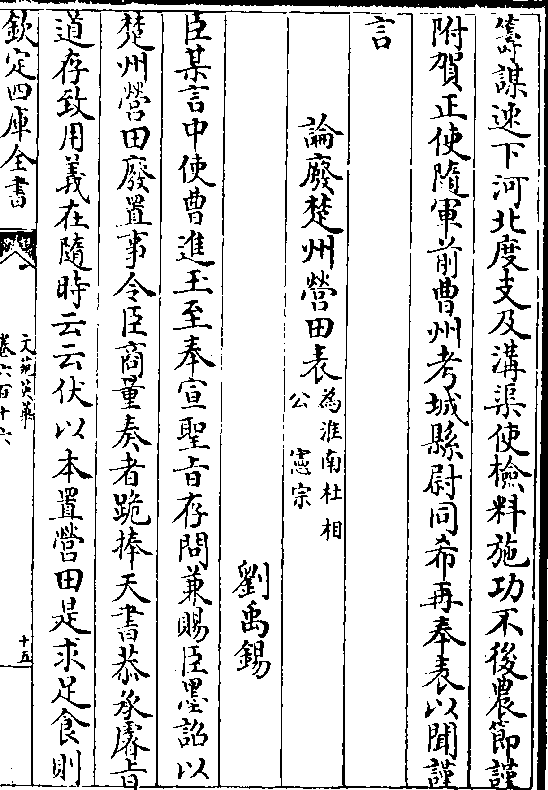 籌謀速下河北度支及溝渠使檢料施功不後農節謹
附賀正使隨軍前曹州考城縣尉同希再奉表以聞謹
言
論廢楚州營田表 為淮南杜相公 憲宗
劉禹錫
臣某言中使曹進玉至奉宣聖旨存問兼賜臣墨詔以
楚州營田廢置事令臣商量奏者跪捧天書恭承睿旨
道存致用義在隨時云云伏以本置營田是求足食則
欽定四庫全書
文苑英華
卷六百十六
十五